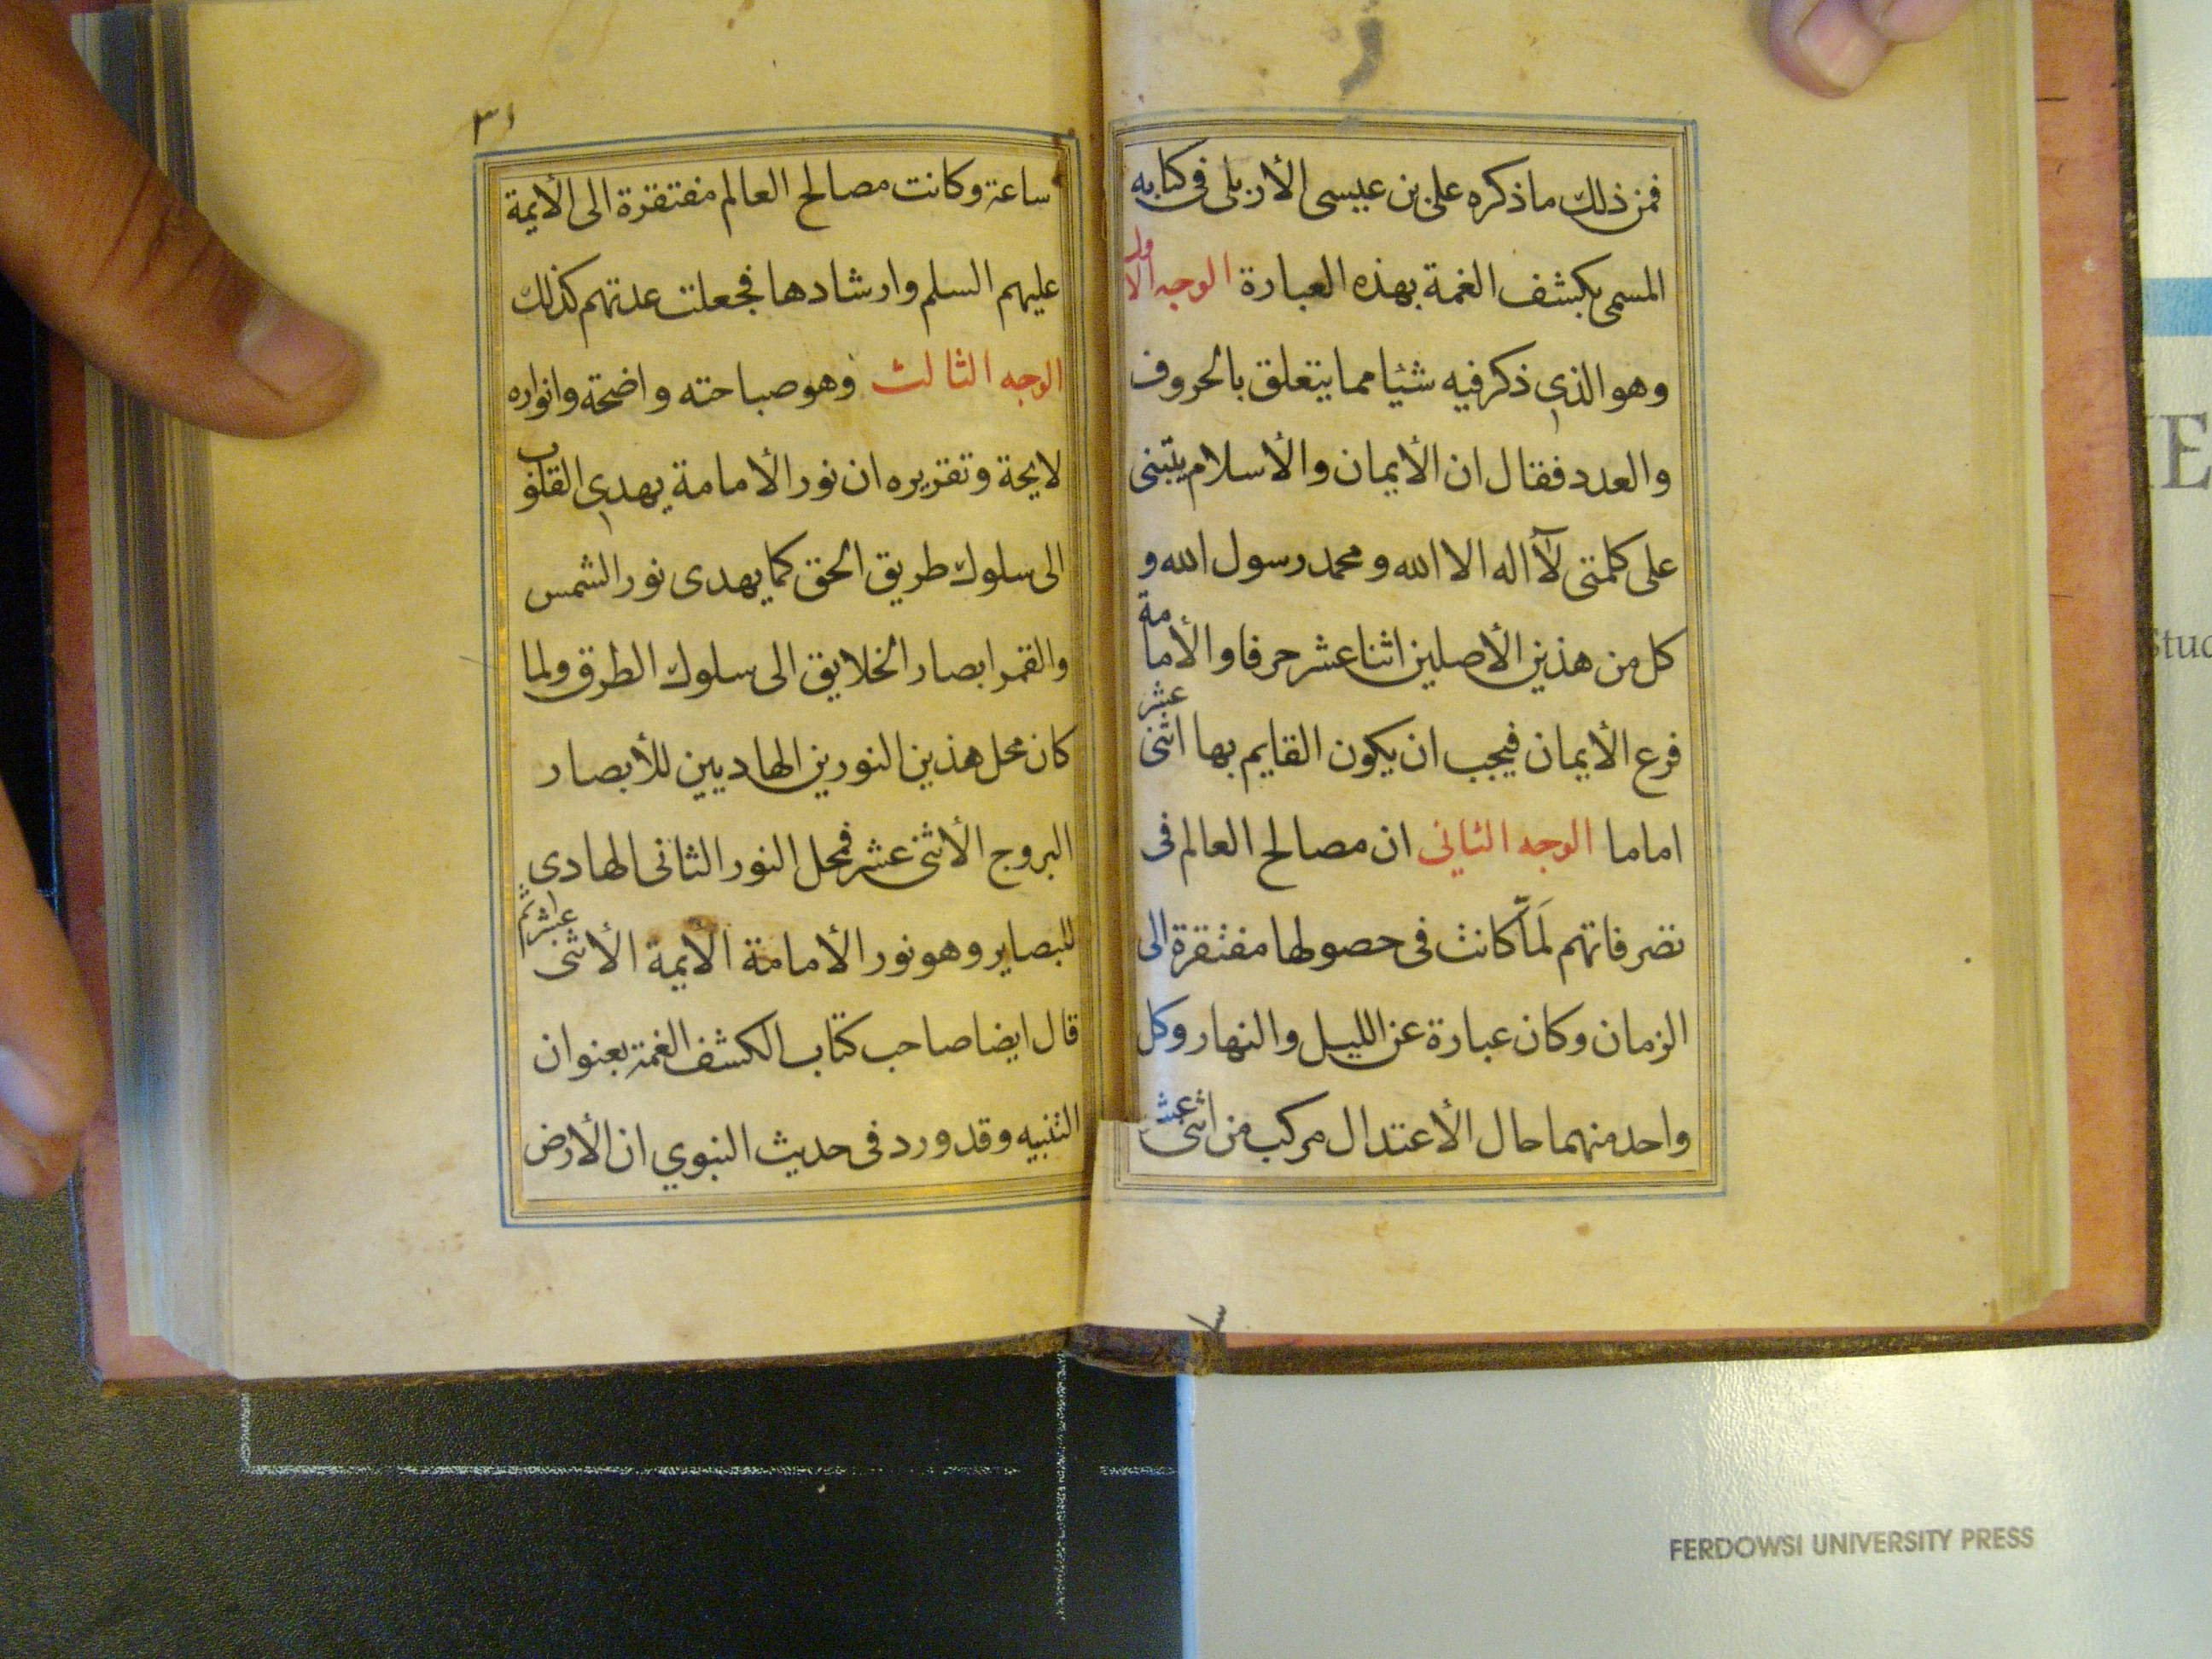 فمن ذلك ما ذكره على بن عيسى الأربلى فى كتابه
المسمى بكشف الغمة بهذه العبارة الوجه الاول
وهو الذى ذكر فيه شئيا مما يتعلق بالحروف
والعدد فقال ان الأيمان والأسلام يبتنى
على كلمتى لآ اله الا الله و محمد رسول الله و
كل من هذين الأصلين اثنا عشر حرفا والأمامة
فرع الأيمان فيجب ان يكون القايم بها اثنى عشر
اماما الوجه الثانى ان مصالح العالم فى
تصرفاتهم لَمّا كانت فى حصولها مفتقرة الى
الزمان وكان عبارة عن الليل والنهار وكل
واحد منهما حال الأعتدال مركب من اثنى عشر
٣١
ساعة وكانت مصالح العالم مفتقرة الى الأيمة
عليهم السلم وارشادها فجعلت عدتهم كذلك
الوجه الثالث وهو صباحته واضحة وانواره
لايحة وتقريره ان نور الأمامة يهدى القلوب
الى سلوك طريق الحق كما يهدى نور الشمس
والقمر ابصار الخلايق الى سلوك الطرق ولما
كان محل هذين النورين الهاديين للأبصار
البروج الأثنى عشر فمحل النور الثانى الهادى
للبصاير وهو نور الأمامة الأيمة الأثنى عشر ثم
قال ايضا صاحب كتاب الكشف الغمة بعنوان
التنبيه وقد ورد فى حديث النبوي ان الأرض
E
Stud
FERDOWSI UNIVERSITY PRESS